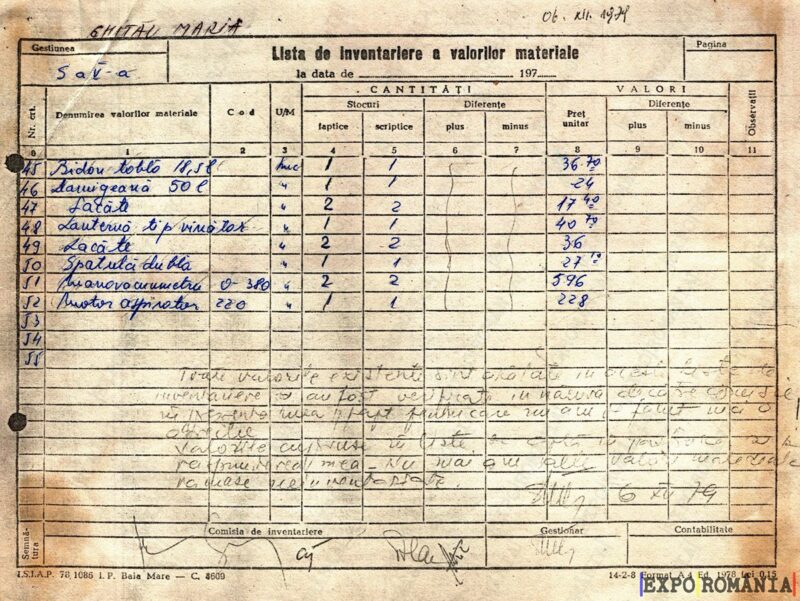 GHITĂU MARIA
06. XII. 1979
Gestiunea
Lista de inventariere a valorilor materiale
Pagina
5 a V-a
la data de 197
CANTITĂŢI
VALORI
Nr. crt.
Denumirea valorilor materiale
Cod
U/M
Stocuri
Diferenţe
Preţ unitar
Diferenţe
Observaţii
faptice
scriptice
plus
minus
plus
minus
0 1 2 3 4 5 6 7 8 9 10 11
45 Bidon tablă 18,5 l buc 1 1 36.70
46 Damigeană 50 l " 1 1 24
47 Lacăte " 2 2 17.40
48 Lanternă tip vînător " 1 1 40.70
49 Lacăte " 2 2 36
50 Spatulă dublă " 1 1 27.10
51 Manovacuumetru 0-380 " 2 2 596
52 Motor aspirator 220 " 1 1 228
53
54
55
Toate valorile existente sînt arătate în aceste liste de
inventariere și au fost verificate în natură de către comisie
în prezența mea fapt pentru care nu am a face nici o
obiecție
Valorile cuprinse în liste se află în păstrarea și
răspunderea mea. Nu mai am alte valori materiale
rămase neinventariate.
6 XII 79
Semnătura
Comisia de inventariere
Gestionar
Contabilitate
I.S.I.A.P. 78 1086 I. P. Baia Mare — C. 3609
14-2-8 Format A 4 Ed. 1978 Lei 0,15
EXPO ROMÂNIA